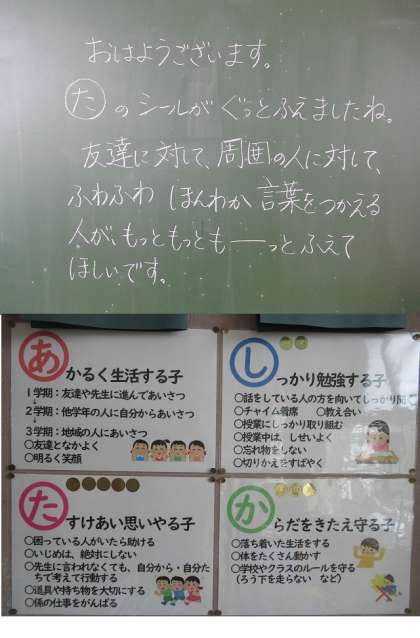 おはようございます。
たのシールがぐっとふえましたね。
友達に対して、周囲の人に対して、
ふわふわ ほんわか 言葉をつかえる
人が、もっともっとも──っとふえて
ほしいです。
あかるく生活する子
1学期：友達や先生に進んであいさつ
↓
2学期：他学年の人に自分からあいさつ
↓
3学期：地域の人にあいさつ
○友達となかよく
○明るく笑顔
しっかり勉強する子
○話をしている人の方を向いてしっかり聞く
○チャイム着席 ○教え合い
○授業にしっかり取り組む
○授業中は、しせいよく
○忘れ物をしない
○切りかえをすばやく
たすけあい思いやる子
○困っている人がいたら助ける
○いじめは、絶対にしない
○先生に言われなくても、自分から・自分た
ちで考えて行動する
○道具や持ち物を大切にする
○係の仕事をがんばる
からだをきたえ守る子
○落ち着いた生活をする
○体をたくさん動かす
○学校やクラスのルールを守る
（ろう下を走らない など）